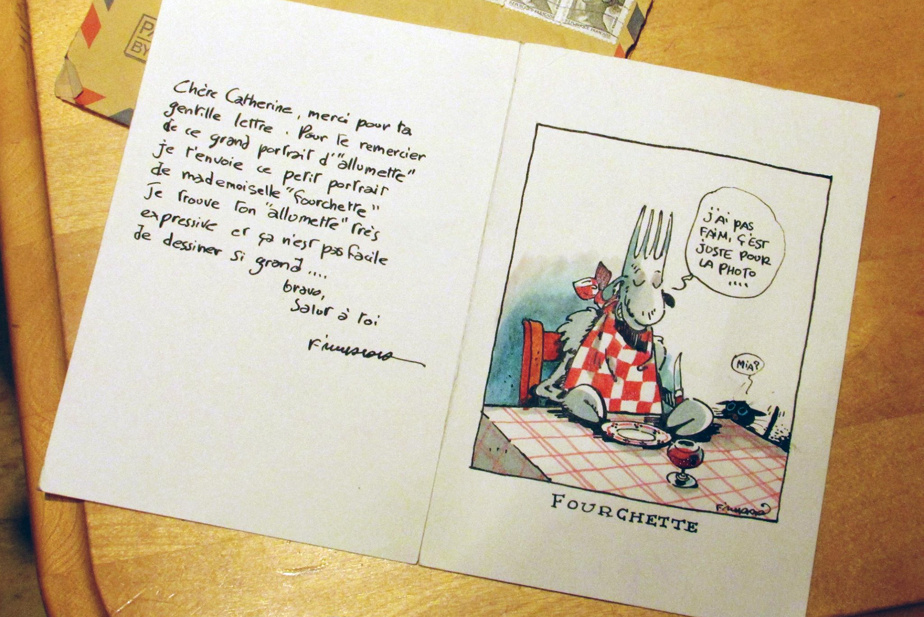 Chère Catherine, merci pour ta
gentille lettre. Pour te remercier
de ce grand portrait d'"allumette"
je t'envoie ce petit portrait
de mademoiselle "fourchette"
Je trouve ton "allumette" très
expressive et ça n'est pas facile
de dessiner si grand....
bravo,
Salut à toi
J'AI PAS
FAIM, C'EST
JUSTE POUR
LA PHOTO
....
MIA?
FOURCHETTE